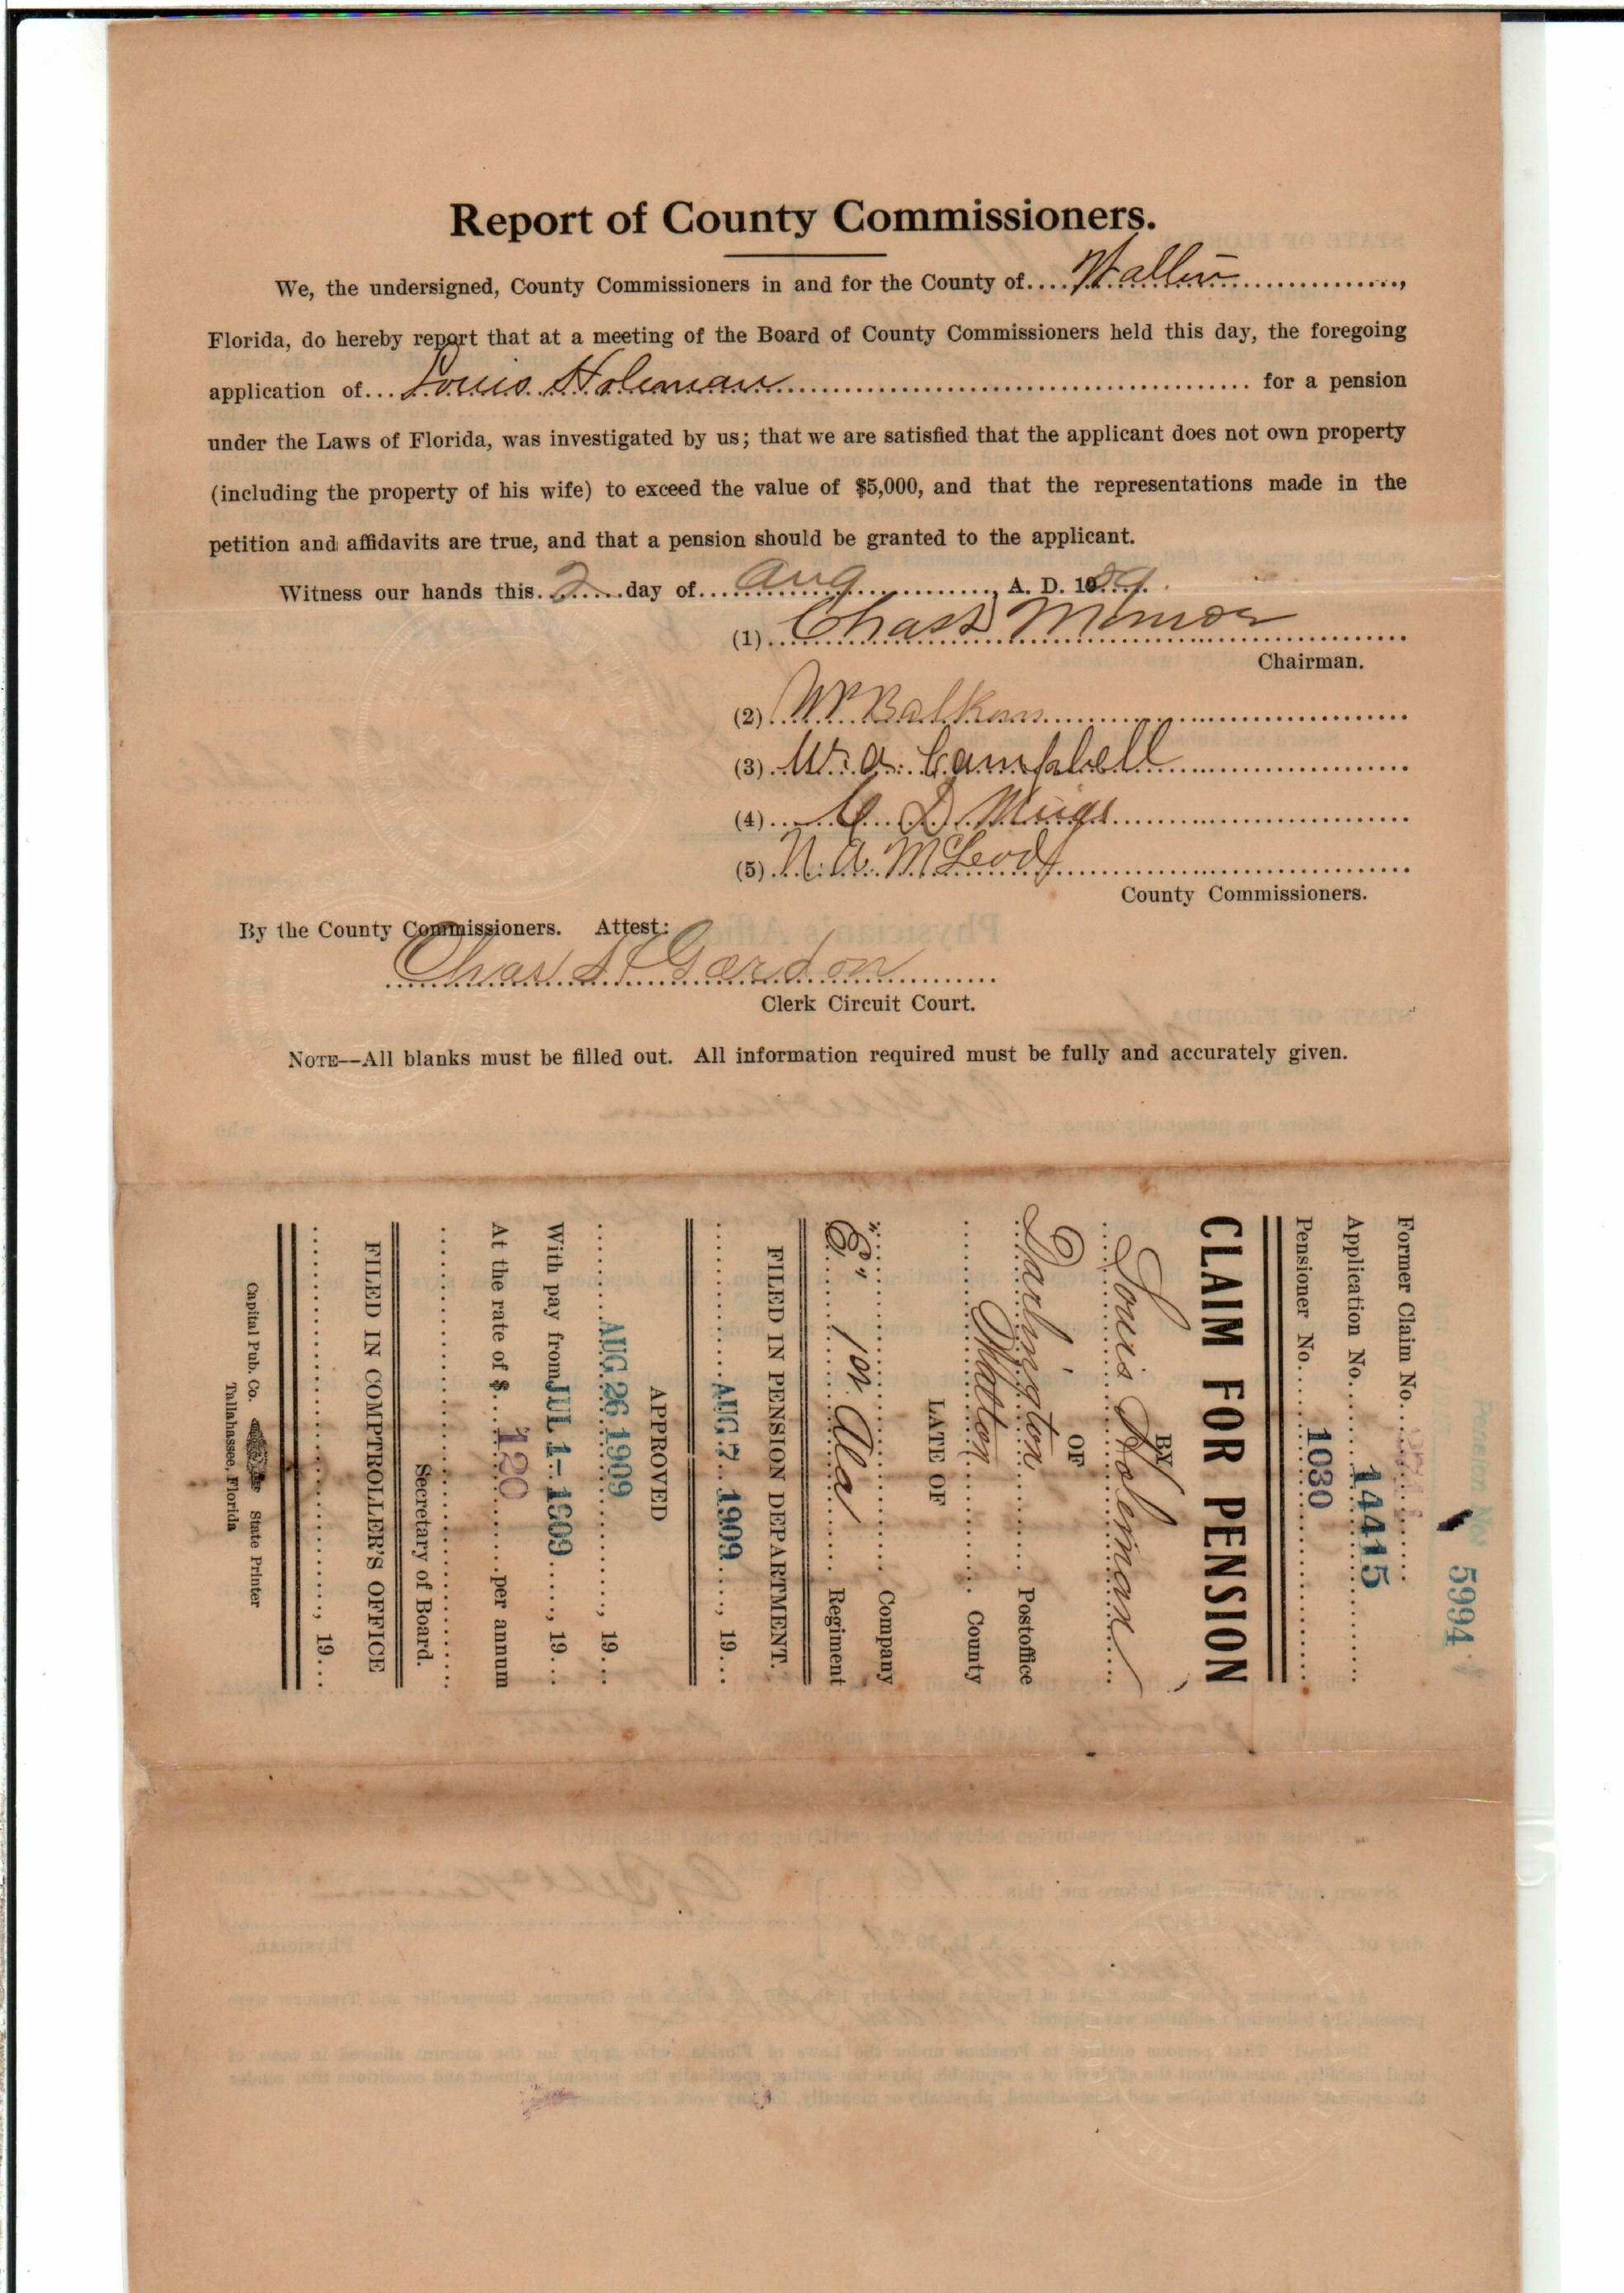 Report of County Commissioners.
We, the undersigned, County Commissioners in and for the County of.... Walton ..............,
Florida, do hereby report that at a meeting of the Board of County Commissioners held this day, the foregoing
application of... Louis Holeman ........ for a pension
under the Laws of Florida, was investigated by us; that we are satisfied that the applicant does not own property
(including the property of his wife) to exceed the value of $5,000, and that the representations made in the
petition and affidavits are true, and that a pension should be granted to the applicant.
Witness our hands this. 2 ....day of.... Aug ........, A. D. 1909.
(1) Chas
Chairman.
(2) W Balkom
(3) W. A. Campbell
(4) C D Meigs
(5) N. A. McLeod
County Commissioners.
By the County Commissioners. Attest:
Chas Gordon
Clerk Circuit Court.
NOTE—All blanks must be filled out. All information required must be fully and accurately given.
Pension No. 5994
Former Claim No.
Application No. 14415
Pensioner No. 1030
CLAIM FOR PENSION
BY
Louis Holeman
OF
Darlington Postoffice
Walton County
LATE OF
"E" Company
1st Ala Regiment
FILED IN PENSION DEPARTMENT.
AUG 7 1909, 19...
APPROVED
AUG 26 1909, 19...
With pay from JUL 1-1909, 19...
At the rate of $ 120 per annum
Secretary of Board.
FILED IN COMPTROLLER'S OFFICE
, 19...
Capital Pub. Co. State Printer
Tallahassee, Florida